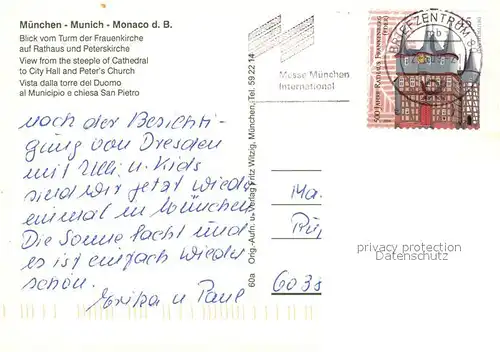 München - Munich - Monaco d. B.
Blick vom Turm der Frauenkirche
auf Rathaus und Peterskirche
View from the steeple of Cathedral
to City Hall and Peter's Church
Vista dalla torre del Duomo
al Municipio e chiesa San Pietro
nach der Besichti-
gung von Dresden
mit Ulli u. Kids
sind wir jetzt wieder
einmal in München.
Die Sonne lacht und
es ist einfach wieder
schön.
Erika u Paul
60a Orig.-Aufn. u. Verlag Fritz Witzig, München, Tel. 59 22 14
Messe München
International
BRIEFZENTRUM 8
mb
500 JAHRE RATHAUS FRANKENBERG (EDER)
Ma.
Rüp
603
privacy protection
Datenschutz